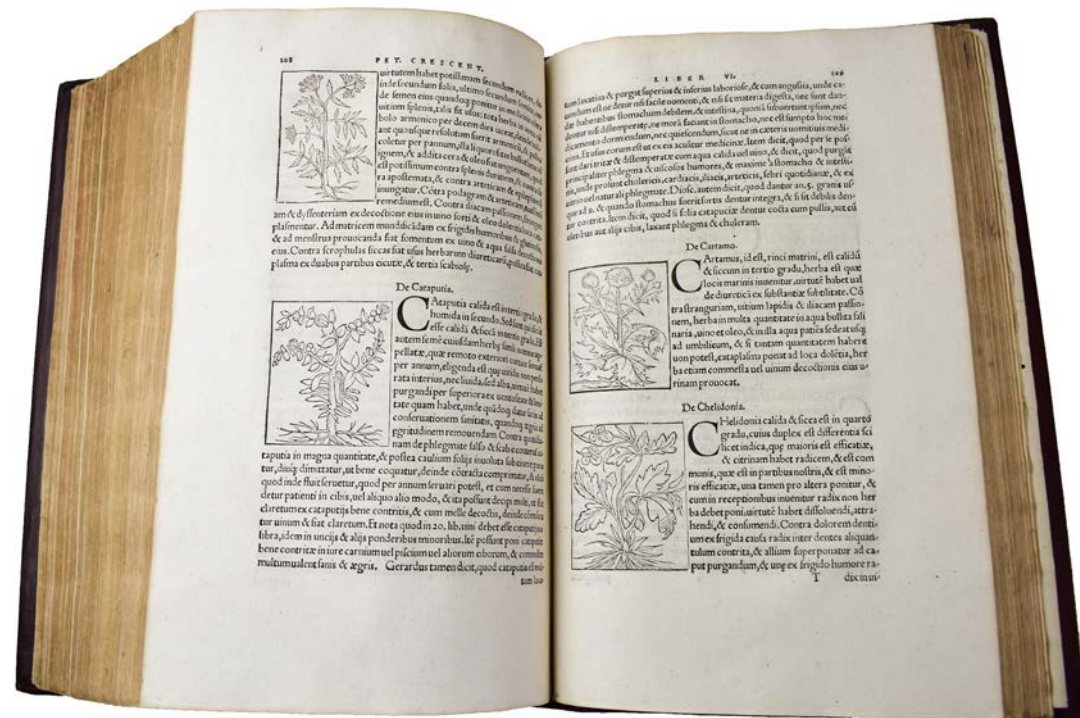 208 PET. CRESCENT.
uirtutem habet potissimum secundum radicem, de
inde secundum folia, ultimo secundum
de semen eius quandoq; ponitur in medicinis
uitium splenis, talis sit usus: tota herba in
bolo armenico per decem dies iaceat, deinde
ant quousque resolutum fuerit armenicũ, &
coletur per pannum, illa liquor
ignem, & addita cera & oleo fiat unguentum, quod
est potissimum contra splenis duritiem, & contra
ra apostemata, & contra arteticam & epilepsiam si
inungatur. Cõtra podagram & arteticam,
remedium est. Contra iliacam passionem,
am & dyssenteriam ex decoctione eius in uino forti & oleo
plasmentur. Ad matricem mundificãdam ex frigidis humoribus &
& ad menstrua prouocanda fiat fomentum ex uino & aqua salsa decoctionis
eius. Contra scrophulas siccas fiat usus herbarum diureticarũ, postea fiat cata
plasma ex duabus partibus cicutæ, & tertia scabiosę.
De Cataputia.
CAtaputia calida est in tertio gradu, &
humida in secundo. Sed sunt qui dicũt
esse calidã & siccã in tertio gradu. Est
autem semẽ cuiusdam herbę simili nomine ap
pellatæ, quæ remoto exteriori cortice seruatur
per annum, eligenda est quę uiridis non perfo
rata interius, nec liuida, sed alba, uirtutẽ habet
purgandi per superiora ex uentositate &
tate quam habet, unde quãdoq; datur sanis ad
conseruationem sanitatis, quandoq; ægris ad
ęgritudinem remouendam. Contra quotidia
nam de phlegmate salso & scabie conterat ca
taputia in magna quantitate, & postea caulium folijs inuoluta sub cinere pona
tur, diuq; dimittatur, ut bene coquatur, deinde cõtracta comprimatur, & oleũ
quod inde fluit seruetur, quod per annum seruari potest, et cum necesse fuerit
detur patienti in cibis, uel aliquo alio modo, & ita possunt decipi multi, ut fit
claretum ex cataputijs bene contritis, & cum melle decoctis, deinde cõmisce
tur uinum & fiat claretum. Et nota quod in 20. lib. uini debet esse cataputiæ
libra, idem in uncijs & alijs ponderibus minoribus. Itẽ possunt poni cataputiæ
bene contritæ in iure carnium uel piscium uel aliorum ciborum, & commestæ
multum ualent sanis & ægris. Gerardus tamen dicit, quod cataputia est mul-
tum laxa-
LIBER VI. 209
tum laxatiua & purgat superius & inferius laboriose, & cum angustia, unde ca-
uendum est ne detur nisi facile uomenti, & nisi sit materia digesta, nec sunt dan-
dæ habentibus stomachum debilem, & intestina, quoniã subuertunt ipsum, nec
dentur nisi distemperatę, ne morã faciunt in stomacho, nec est sumpto hoc me
dicamento dormiendum, nec quiescendum, sicut nec in cæteris uomitiuis medi
cinis. Et usus eorum est ut ex eis acuitur medicinæ. Item dicit, quod per se pos-
sunt dari tritæ & distemperatæ cum aqua calida uel uino, & dicit, quod purgãt
principaliter phlegma & uiscosos humores, & maxime à stomacho & intesti-
nis, unde prosunt cholericis, cardiacis, iliacis, arteticis, febri quotidianæ, & ex
uitrio uel naturali phlegmate. Diosc. autem dicit, quod dantur an. 5. granis us-
que ad 9. & quando stomachus fuerit fortis dentur integra, & si sit debilis den-
tur contrita. Item dicit, quod si folia cataputiæ dentur cocta cum pullis, aut cũ
oleribus aut alijs cibis, laxant phlegma & choleram.
De Cartamo.
CArtamus, id est, rinci matrini, est calidũ
& siccum in tertio gradu, herba est quæ
locis marinis inuenitur, uirtutẽ habet ual
de diureticã ex substantiæ subtilitate. Cõ
tra stranguriam, uitium lapidis & iliacam passio-
nem, herba in multa quantitate in aqua bullita sali
naria, uino et oleo, & in illa aqua patiẽs sedeat usq;
ad umbilicum, & si tantam quantitatem habere
uon potest, cataplasma ponat ad loca dolẽtia, her
ba etiam commesta uel uinum decoctionis eius u-
rinam prouocat.
De Chelidonia.
CHelidonia calida & sicca est in quarto
gradu, cuius duplex est differentia sci
licet indica, quę maioris est efficatiæ,
& citrinam habet radicem, & est com
munis, quæ est in partibus nostris, & est mino-
ris efficatiæ, una tamen pro altera ponitur, &
cum in receptionibus inuenitur radix non her
ba debet poni, uirtutẽ habet dissoluendi, attra-
hendi, & consumendi. Contra dolorem denti-
um ex frigida causa radix inter dentes aliquan-
tulum contrita, & allium superponatur ad ca-
put purgandum, & uuę ex frigido humore ra-
T dix in ui-